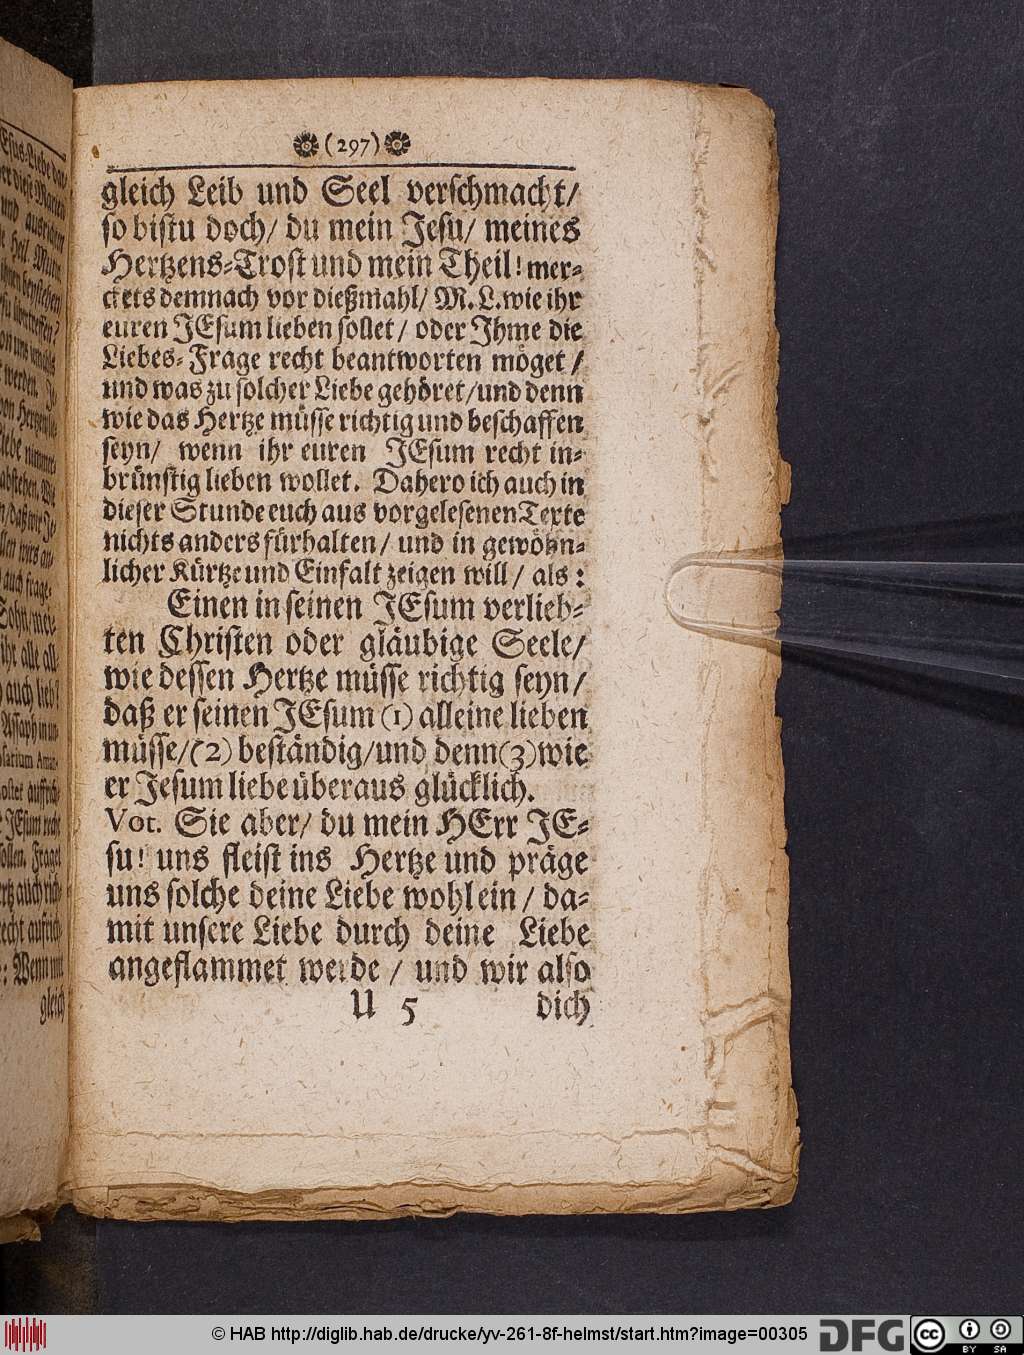 (297)
gleich Leib und Seel verschmacht/
so bistu doch/ du mein Jesu/ meines
Hertzens-Trost und mein Theil! mer-
ckets demnach vor dießmahl/ M. L. wie ihr
euren JEsum lieben sollet/ oder Ihme die
Liebes-Frage recht beantworten möget/
und was zu solcher Liebe gehöret/und denn
wie das Hertze müsse richtig und beschaffen
seyn/ wenn ihr euren JEsum recht in-
brünstig lieben wollet. Dahero ich auch in
dieser Stunde euch aus vorgelesenen Texte
nichts anders fürhalten/ und in gewöhn-
licher Kürtze und Einfalt zeigen will/ als:
Einen in seinen JEsum verlieb-
ten Christen oder gläubige Seele/
wie dessen Hertze müsse richtig seyn/
daß er seinen JEsum (1) alleine lieben
müsse/(2) beständig/und denn(3)wie
er Jesum liebe überaus glücklich.
Vot. Sie aber/ du mein HErr JE-
su! uns fleist ins Hertze und präge
uns solche deine Liebe wohl ein/ da-
mit unsere Liebe durch deine Liebe
angeflammet werde/ und wir also
U 5 dich
gleich
© HAB http://diglib.hab.de/drucke/yv-261-8f-helmst/start.htm?image=00305
DFG
cc BY SA